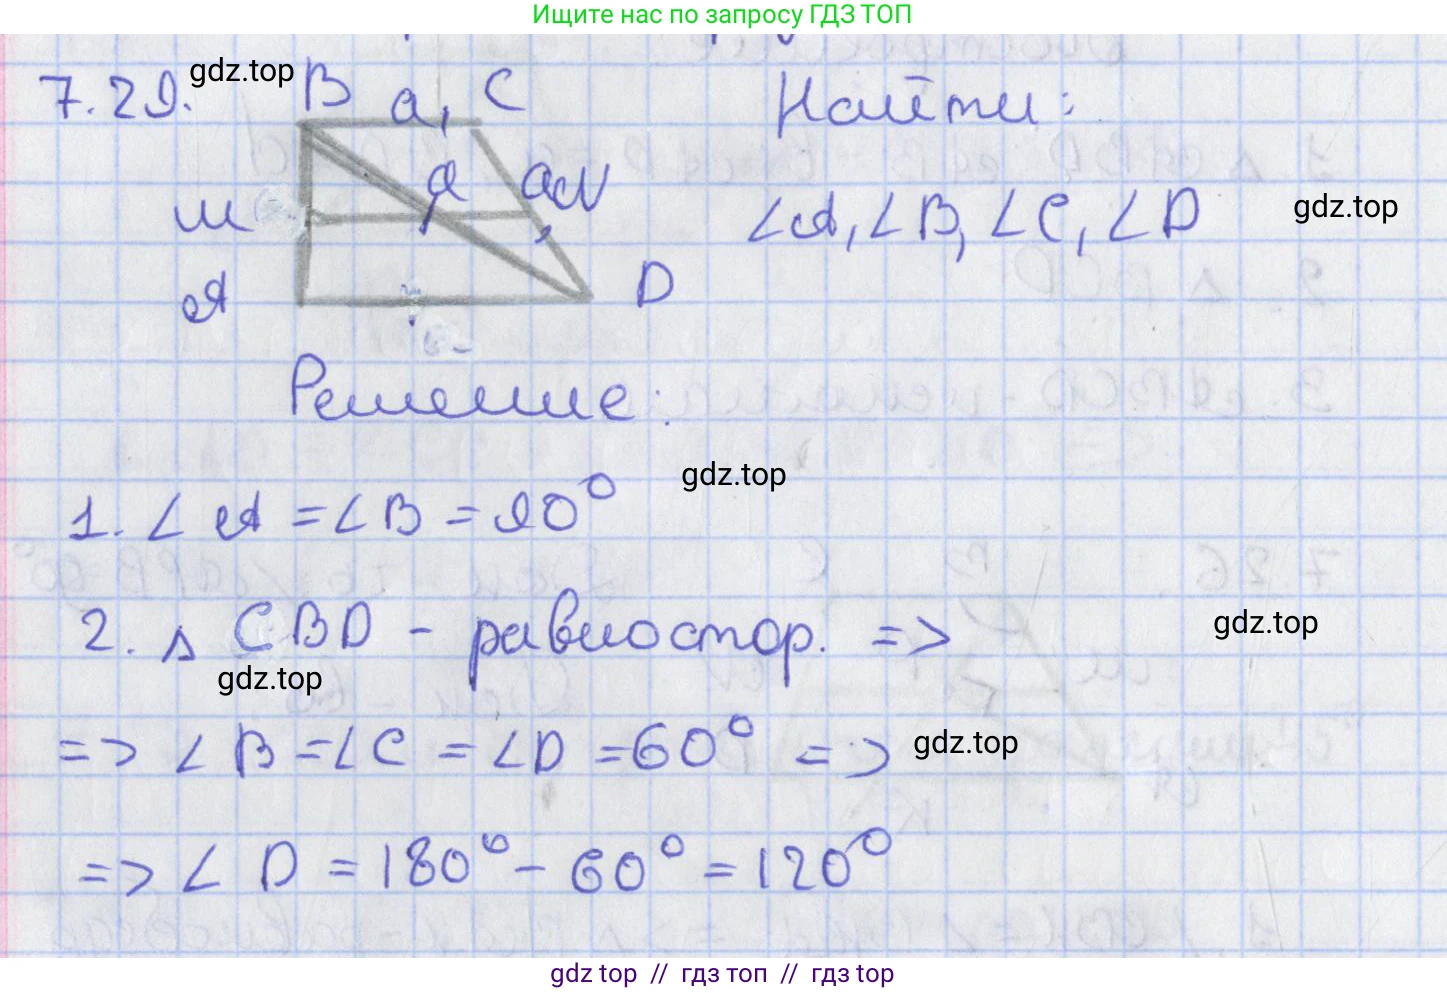 Ищите нас по запросу ГДЗ ТОП
7.29. gdz.top B a, C Найти:
a aN
M ∠A, ∠B, ∠C, ∠D gdz.top
A D
Решение:
gdz.top
1. ∠A = ∠B = 90°
2. △ CBD - равностор. => gdz.top
gdz.top
=> ∠B = ∠C = ∠D = 60° => gdz.top
=> ∠D = 180° - 60° = 120°
gdz top // гдз топ // гдз top